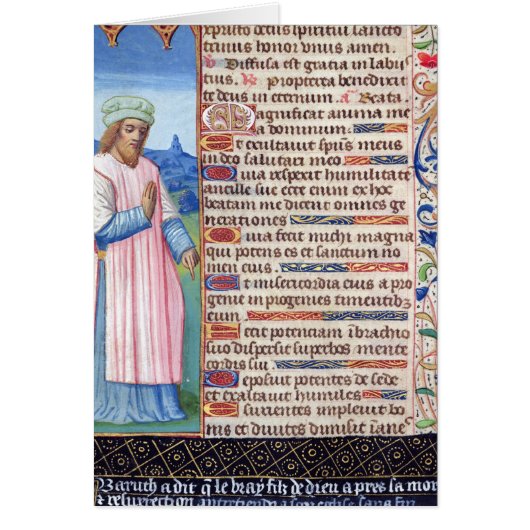 spiritui sancto
honor vnus amen.
v Diffusa est gratia in labi
tuis. R propterea benedixit
te deus in eternum. a Beata.
Magnificat anima me
a dominum.
Et exultauit sp̄us meus
in deo salutari meo
Quia respexit humilitatē
ancille sue ecce enim ex hoc
beatam me dicent omnes ge
nerationes
Quia fecit michi magna
qui potens est et sanctum no
men eius.
Et misericordia eius a pro
genie in progenies timentibꝫ
eum
Fecit potenciam in brachio
suo dispersit superbos mente
cordis sui
Deposuit potentes de sede
et exaltauit humiles
Esurientes impleuit bo
nis et diuites dimisit inane
Baruch a dit q̄ le vray filz de dieu apres sa mor
et resurrection son eglise sans fin